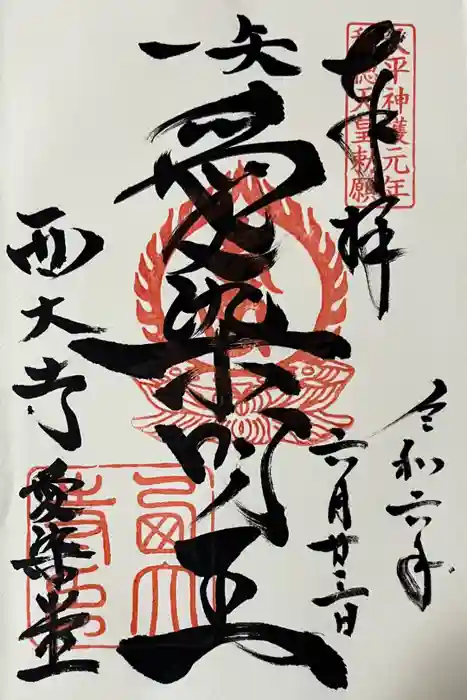 天平神護元年
称徳天皇勅願
奉拝
令和六年
六月廿三日
一矢
愛染明王
西大寺
愛染堂